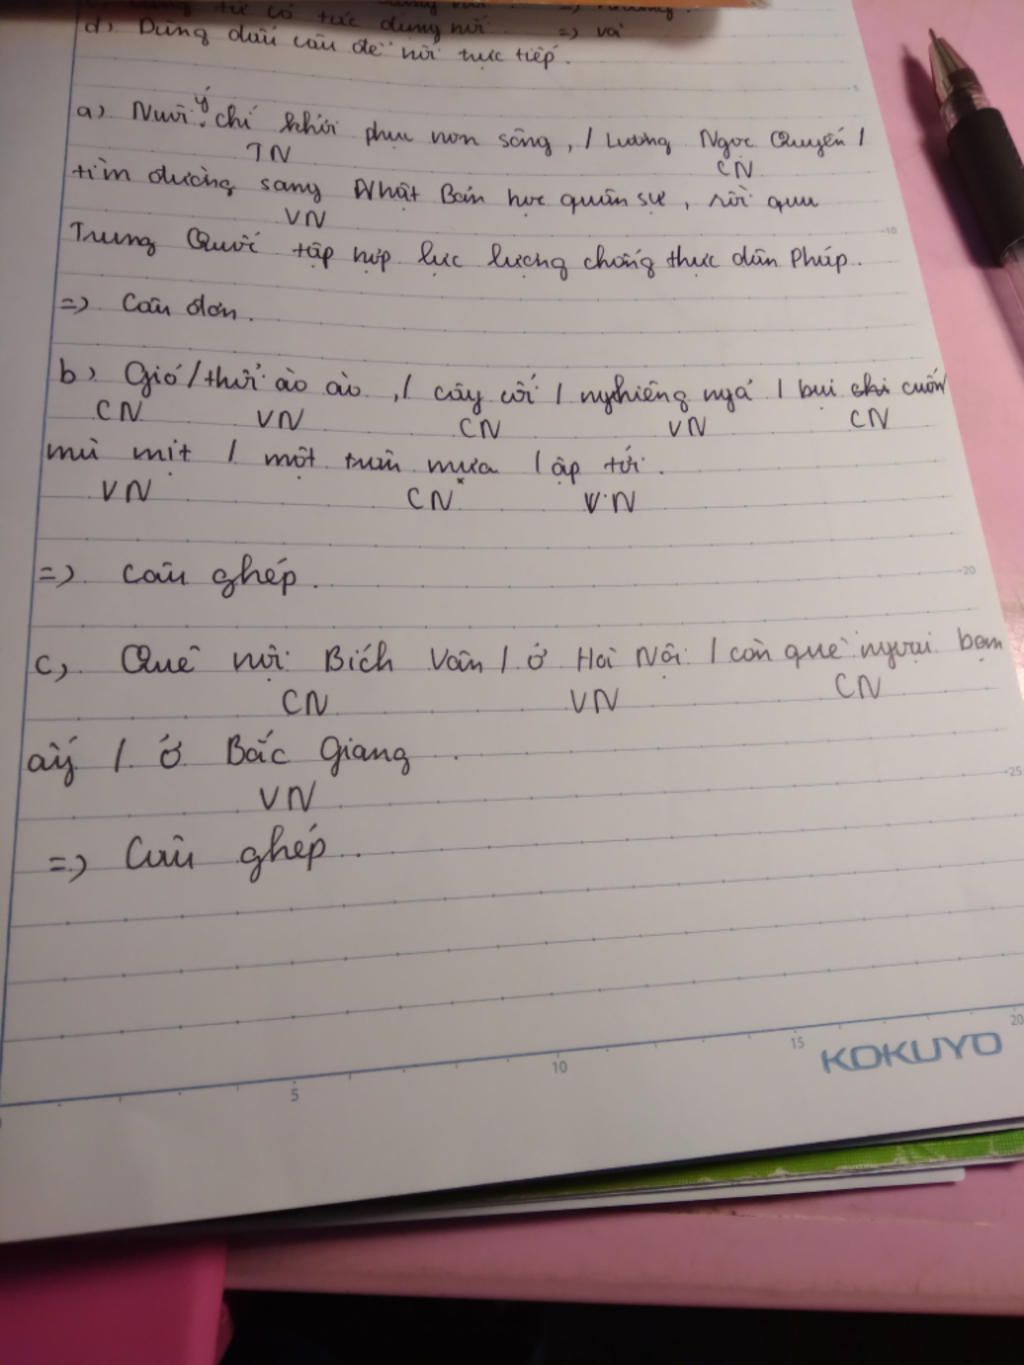 d). Dùng dấu câu để nối trực tiếp.
a) Nuôi ý chí khôi phục non sông, / Lương Ngọc Quyến /
TN CN
tìm đường sang Nhật Bản học quân sự, rồi qua
VN
Trung Quốc tập hợp lực lượng chống thực dân Pháp.
=) Câu đơn.
b) Gió / thổi ào ào, / cây cối / nghiêng ngả / bụi cuốn
CN VN CN VN CN
mù mịt / một trận mưa / ập tới.
VN CN VN
=). Câu ghép.
c, Quê nội Bích Vân / ở Hà Nội / còn quê ngoại bạn
CN VN CN
ấy / ở Bắc Giang.
VN
=) Câu ghép.
5 10 15 20
KOKUYO